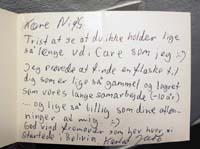 Kære Niels
Trist at se at du ikke holder lige
så længe ved i Care som jeg :-)
Jeg prøvede at finde en flaske til
dig som er lige så gammel og lagret
som vores lange samarbejde (-10 år)
... og lige så billig som dine aflø-
ninger af mig :-)
God vind fremover som her hvor vi
startede i Bolivia.